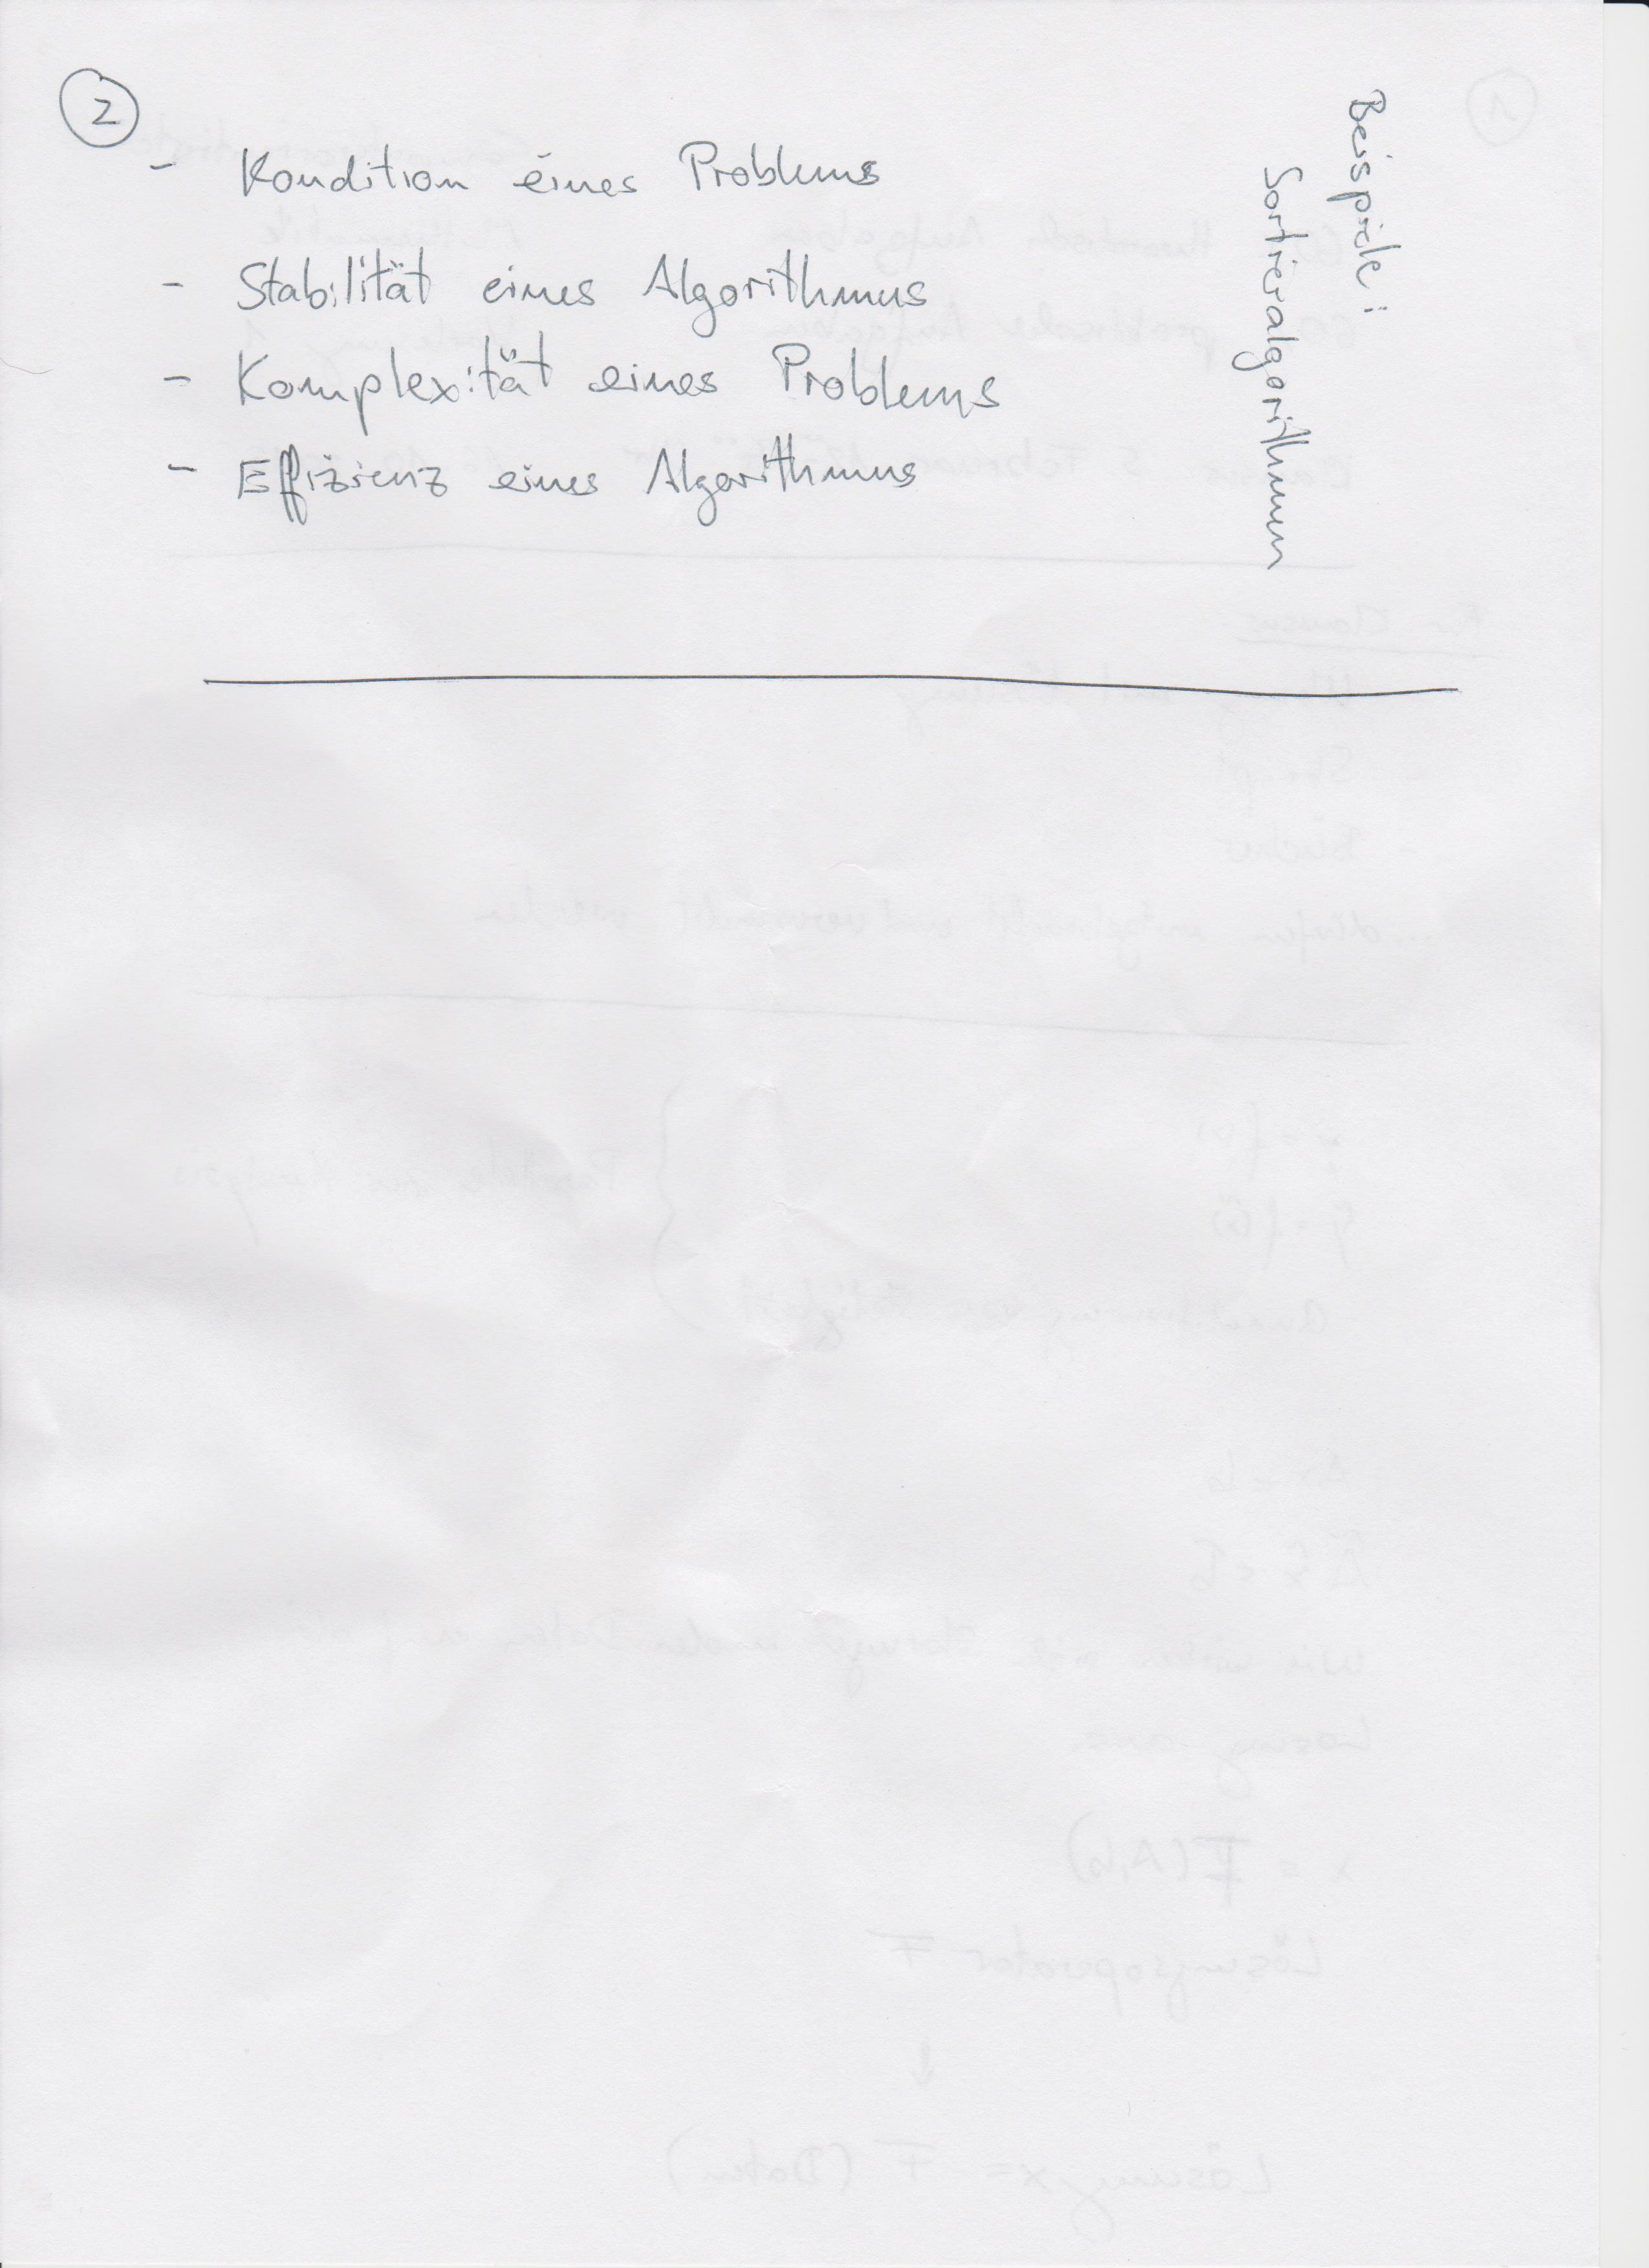 2
- Kondition eines Problems
- Stabilität eines Algorithmus
- Komplexität eines Problems
- Effizienz eines Algorithmus
Beispiele:
Sortieralgorithmen